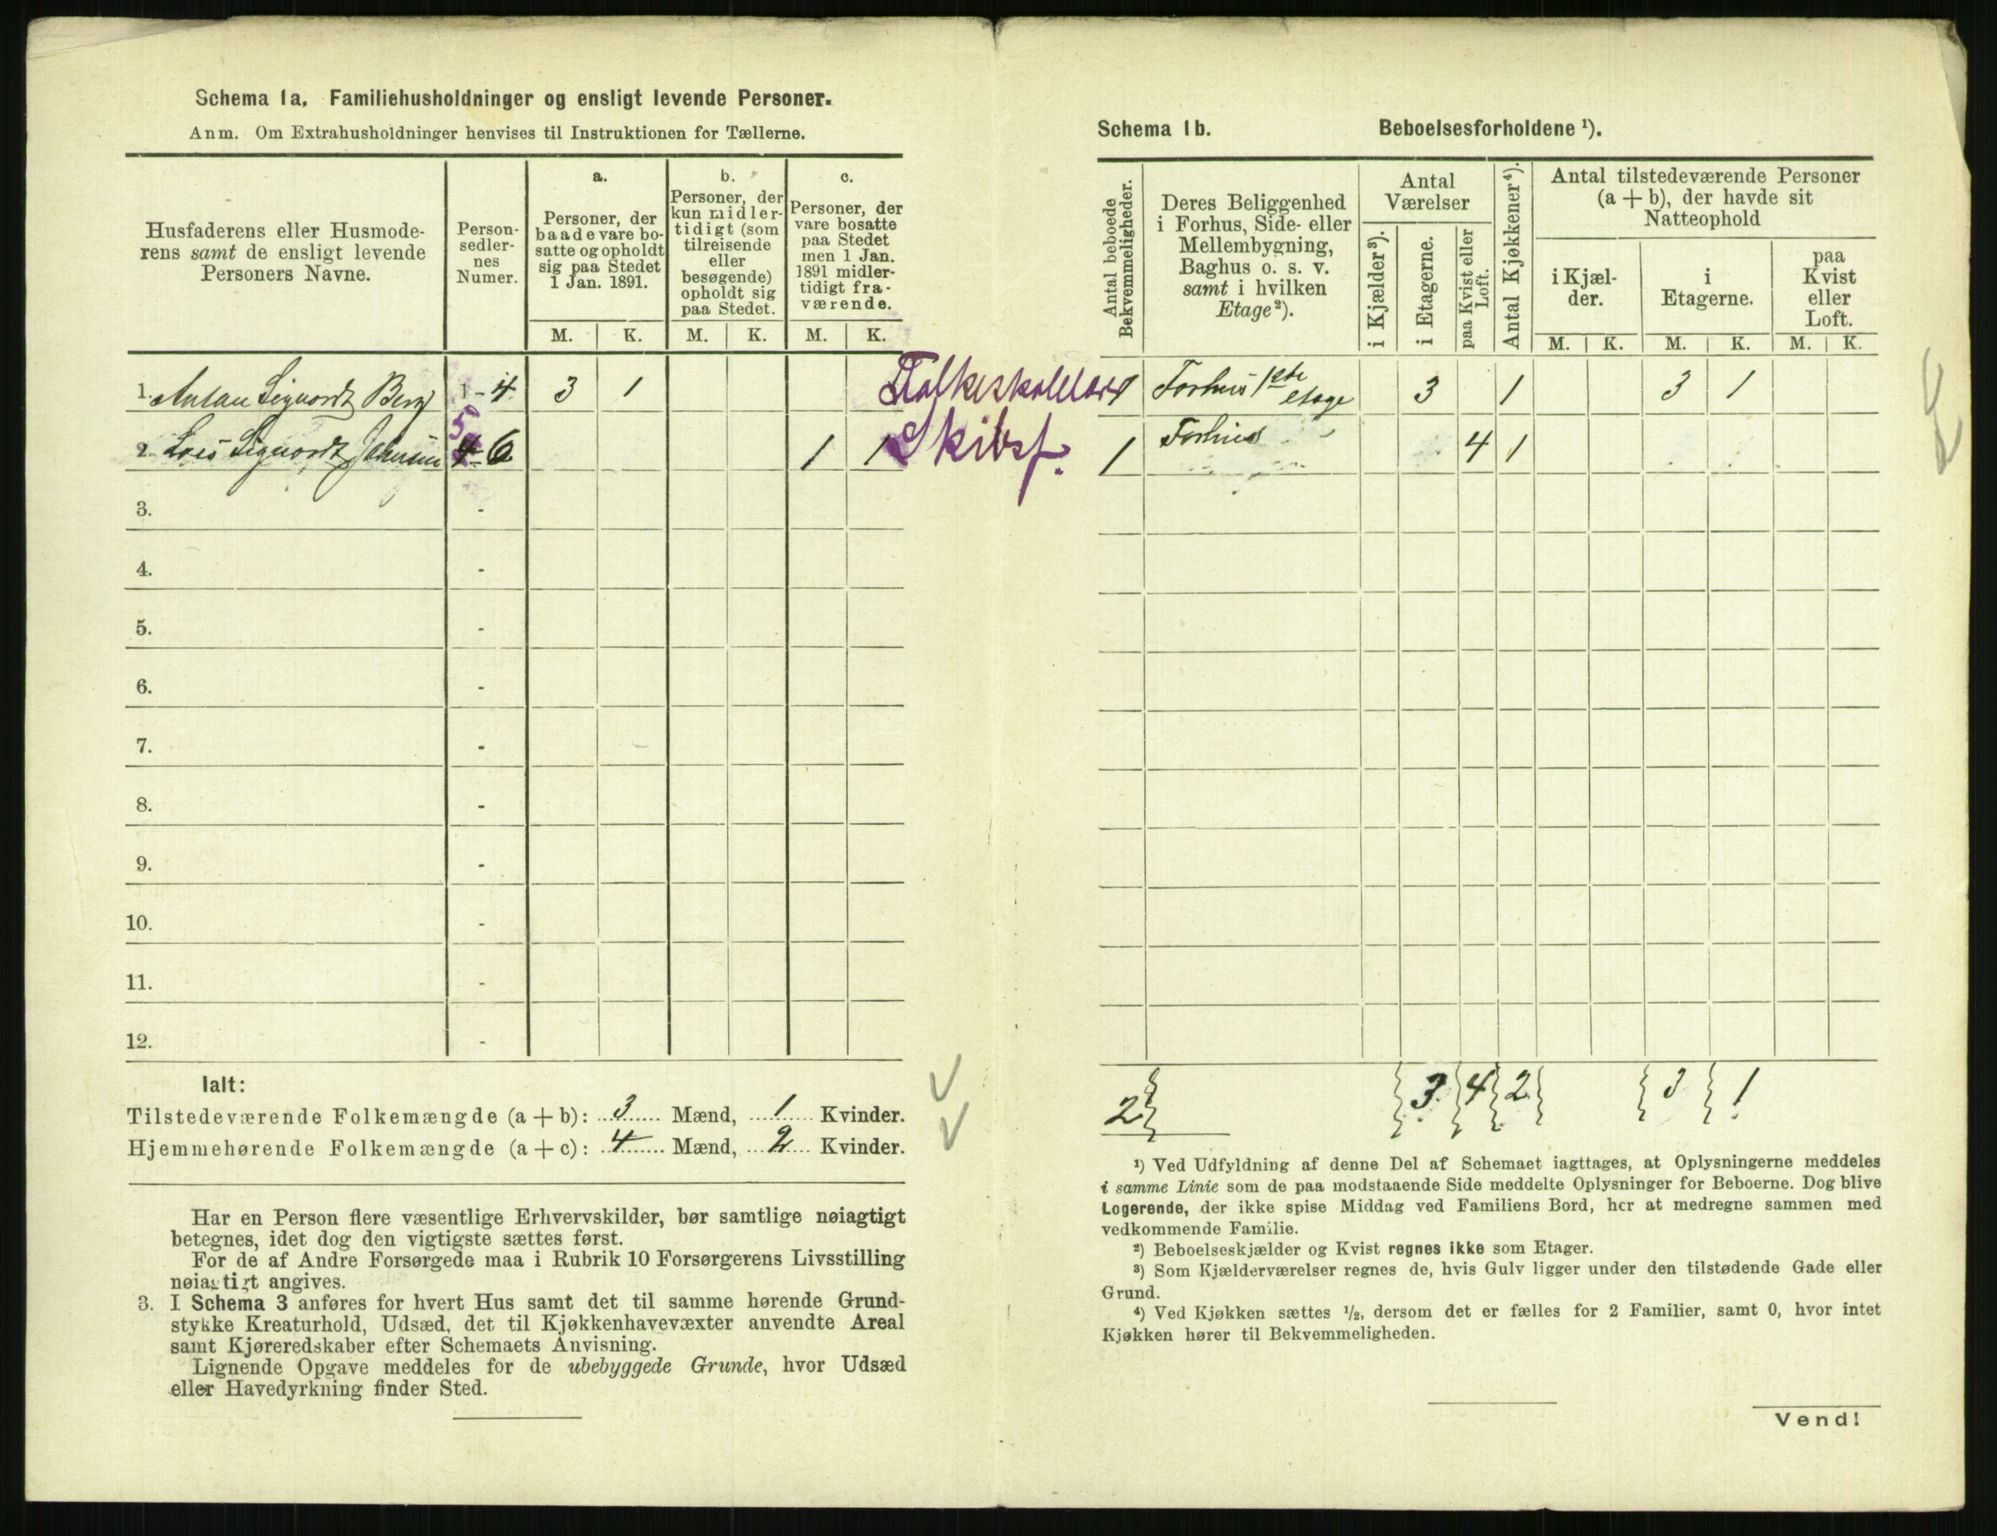 Schema 1a. Familiehusholdninger og ensligt levende Personer.
Anm. Om Extrahusholdninger henvises til Instruktionen for Tællerne.
Husfaderens eller Husmoderens samt de ensligt levende Personers Navne.
Personsedlernes Numer.
a.
Personer, der baade vare bosatte og opholdt sig paa Stedet 1 Jan. 1891.
b.
Personer, der kun midlertidigt (som tilreisende eller besøgende) opholdt sig paa Stedet.
c.
Personer, der vare bosatte paa Stedet men 1 Jan. 1891 midlertidigt fraværende.
M. K. M. K. M. K.
1. Antan Sigvordt Berg 1 - 4 3 1 Folkeskolelær
2. Sigvordt 5 4 - 6 1 1 Skibsf.
3. -
4. -
5. -
6. -
7. -
8. -
9. -
10. -
11. -
12. -
Ialt:
Tilstedeværende Folkemængde (a + b): 3 Mænd, 1 Kvinder.
Hjemmehørende Folkemængde (a + c): 4 Mænd, 2 Kvinder.
Har en Person flere væsentlige Erhvervskilder, bør samtlige nøiagtigt
betegnes, idet dog den vigtigste sættes først.
For de af Andre Forsørgede maa i Rubrik 10 Forsørgerens Livsstilling
nøiagtigt angives.
3. I Schema 3 anføres for hvert Hus samt det til samme hørende Grund-
stykke Kreaturhold, Udsæd, det til Kjøkkenhavevæxter anvendte Areal
samt Kjøreredskaber efter Schemaets Anvisning.
Lignende Opgave meddeles for de ubebyggede Grunde, hvor Udsæd
eller Havedyrkning finder Sted.
Schema 1b. Beboelsesforholdene ¹).
Antal beboede Bekvemmeligheder.
Deres Beliggenhed i Forhus, Side- eller Mellembygning, Baghus o. s. v. samt i hvilken Etage ²).
Antal Værelser
i Kjælder ³).
i Etagerne.
paa Kvist eller Loft.
Antal Kjøkkener ⁴).
Antal tilstedeværende Personer (a + b), der havde sit Natteophold
i Kjælder.
i Etagerne.
paa Kvist eller Loft.
M. K. M. K. M. K.
1 Forhus 1ste etage 3 1 3 1
1 Forhus 4 1
2 3 4 2 3 1
¹) Ved Udfyldning af denne Del af Schemaet iagttages, at Oplysningerne meddeles
i samme Linie som de paa modstaaende Side meddelte Oplysninger for Beboerne. Dog blive
Logerende, der ikke spise Middag ved Familiens Bord, her at medregne sammen med
vedkommende Familie.
²) Beboelseskjælder og Kvist regnes ikke som Etager.
³) Som Kjælderværelser regnes de, hvis Gulv ligger under den tilstødende Gade eller
Grund.
⁴) Ved Kjøkken sættes ½, dersom det er fælles for 2 Familier, samt 0, hvor intet
Kjøkken hører til Bekvemmeligheden.
Vend!